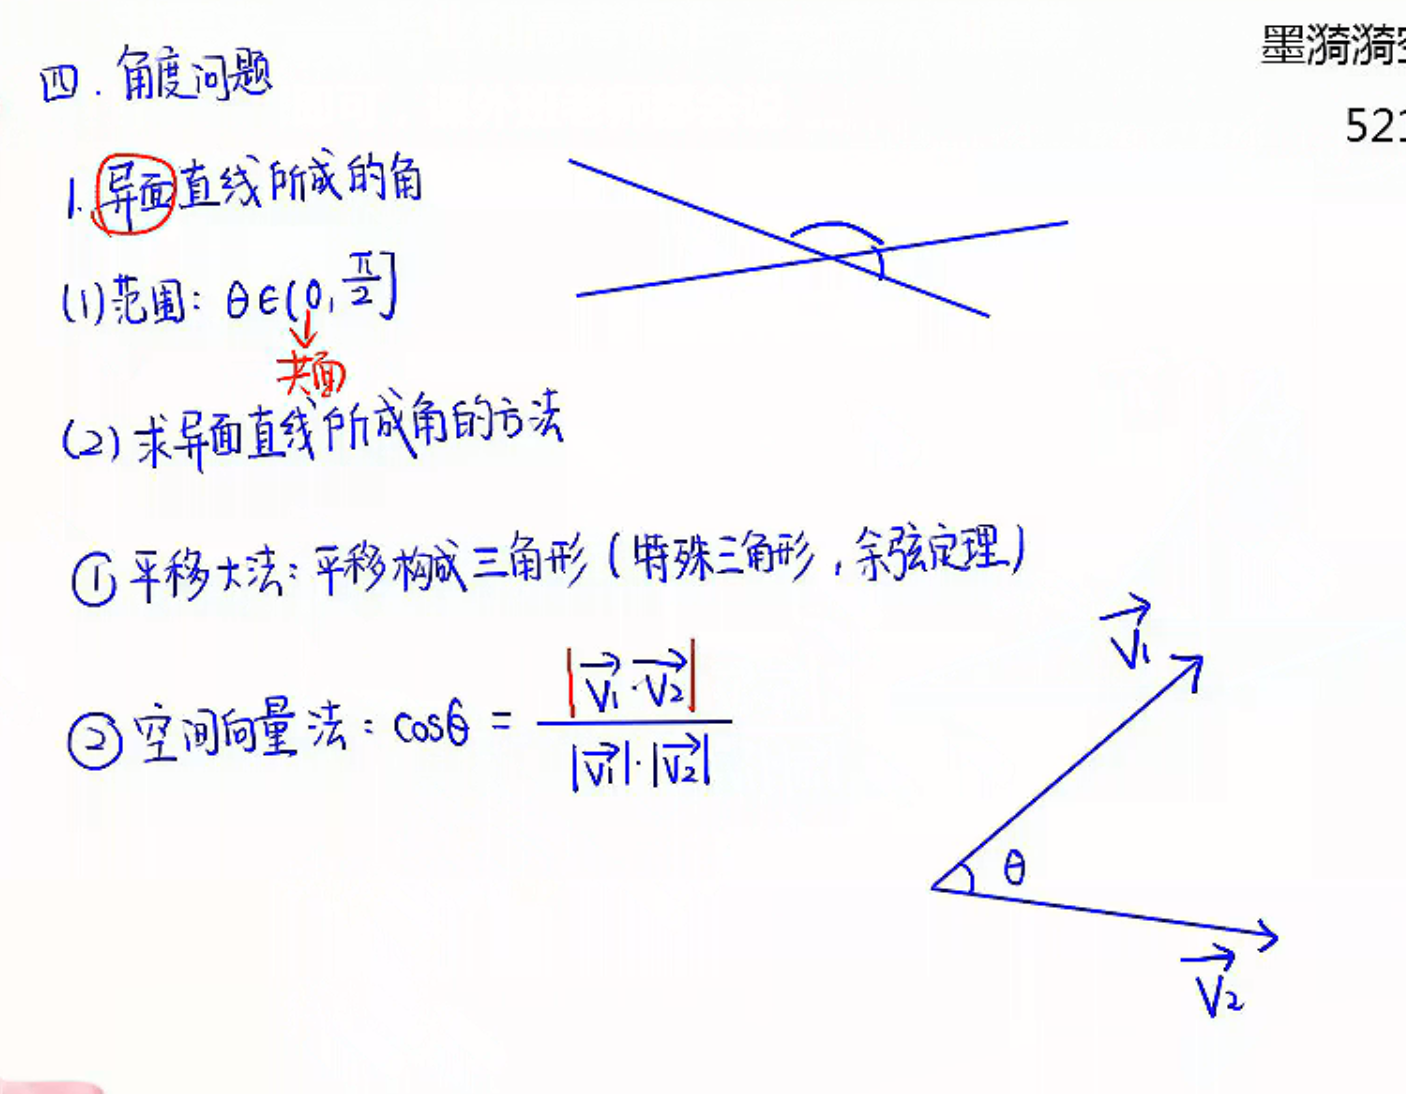 墨漪漪
521
四.角度问题
1.异面直线所成的角
(1)范围: θ∈(0, π/2]
共面
(2)求异面直线所成角的方法
①平移大法:平移构成三角形(特殊三角形,余弦定理)
②空间向量法: cosθ = |v₁·v₂| / |v₁|·|v₂|
V₁
θ
V₂